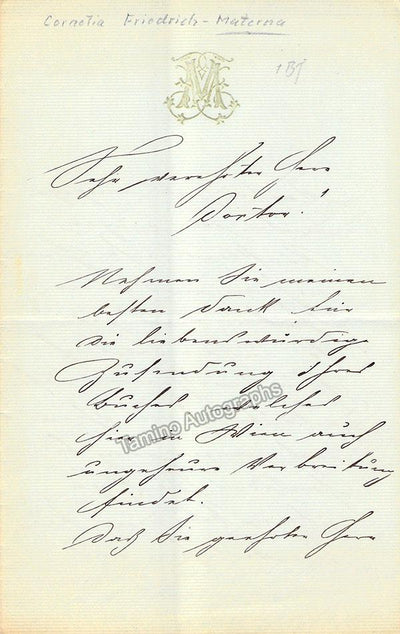 Cornelia Friedrich-Materna
1 Bf
Sehr verehrter Herr
Doctor!
Nehmen Sie meinen
besten Dank für
die liebenswürdige
Zusendung Ihres
Buches welches
hier in Wien auch
ungeheure Verbreitung
findet.
Daß Sie geehrter Herr
Tamino Autographs